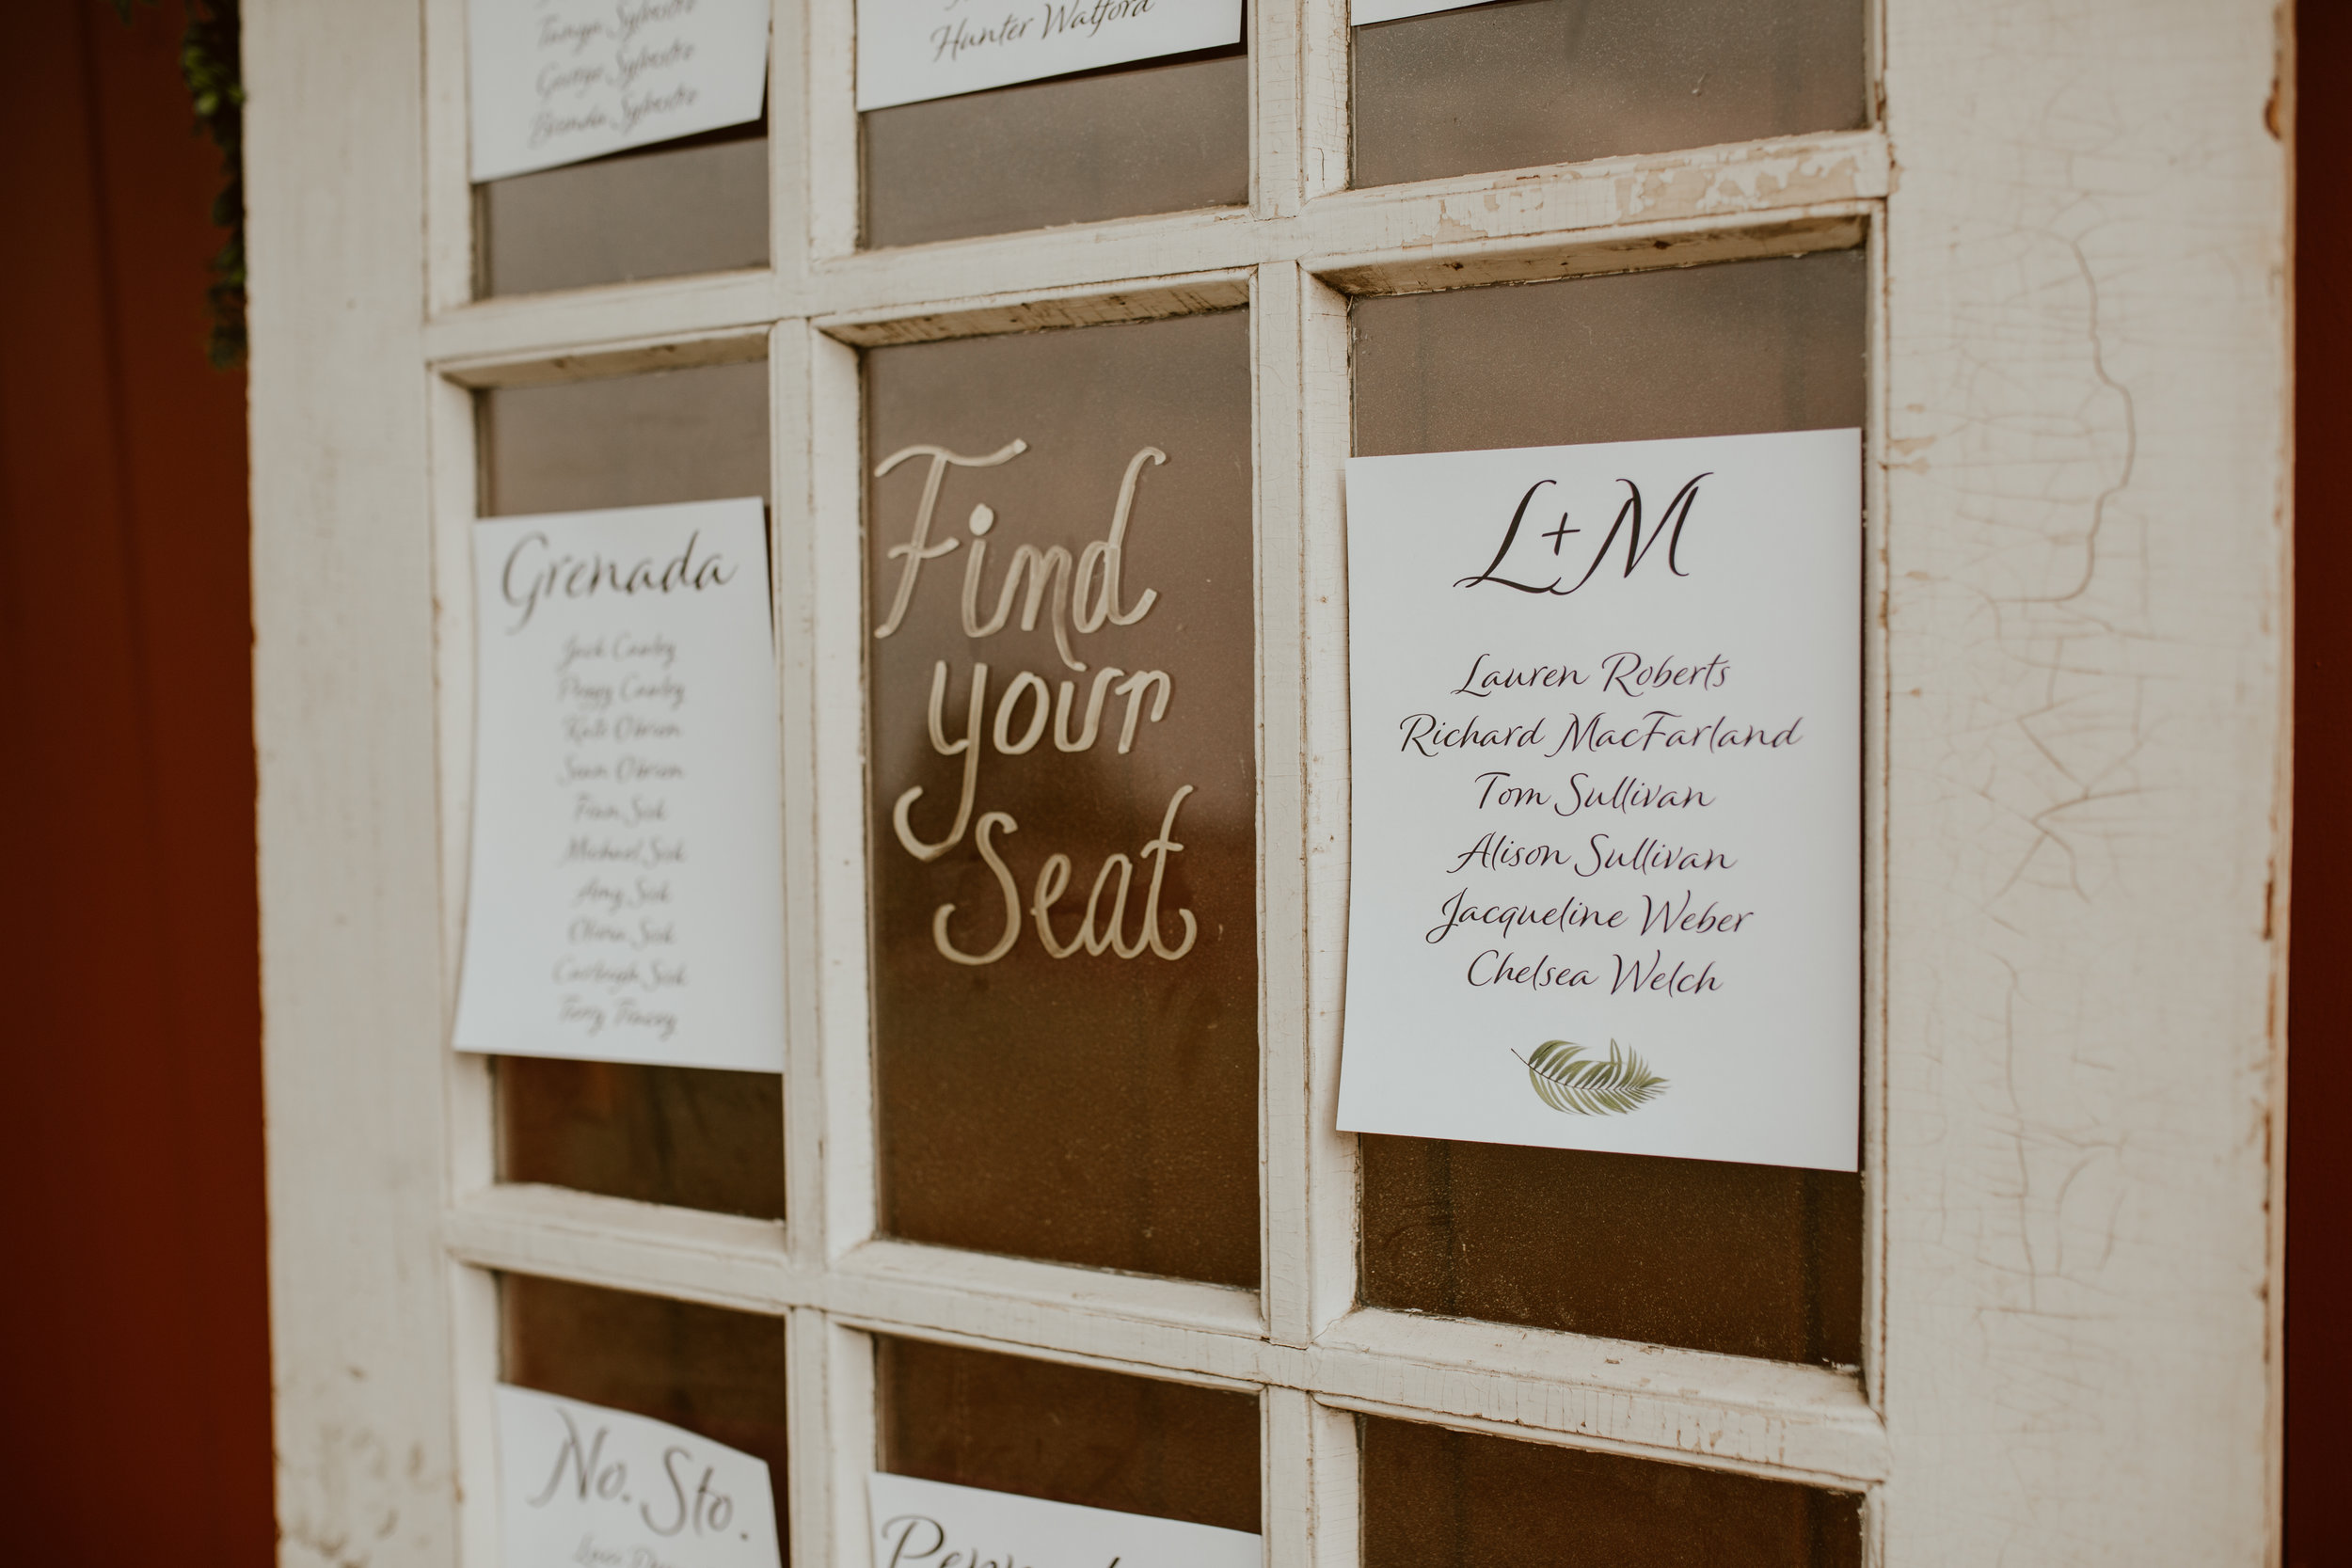 Sylvestre
George Sylvestre
Brenda Sylvestre
Hunter Watford
Grenada
Jack Cawley
Peggy Cawley
Kate Obrien
Sean Obrien
Fran Sisk
Michael Sisk
Amy Sisk
Olivia Sisk
Carleigh Sisk
Terry Tracey
Find
your
Seat
L+M
Lauren Roberts
Richard MacFarland
Tom Sullivan
Alison Sullivan
Jacqueline Weber
Chelsea Welch
No. Sto.